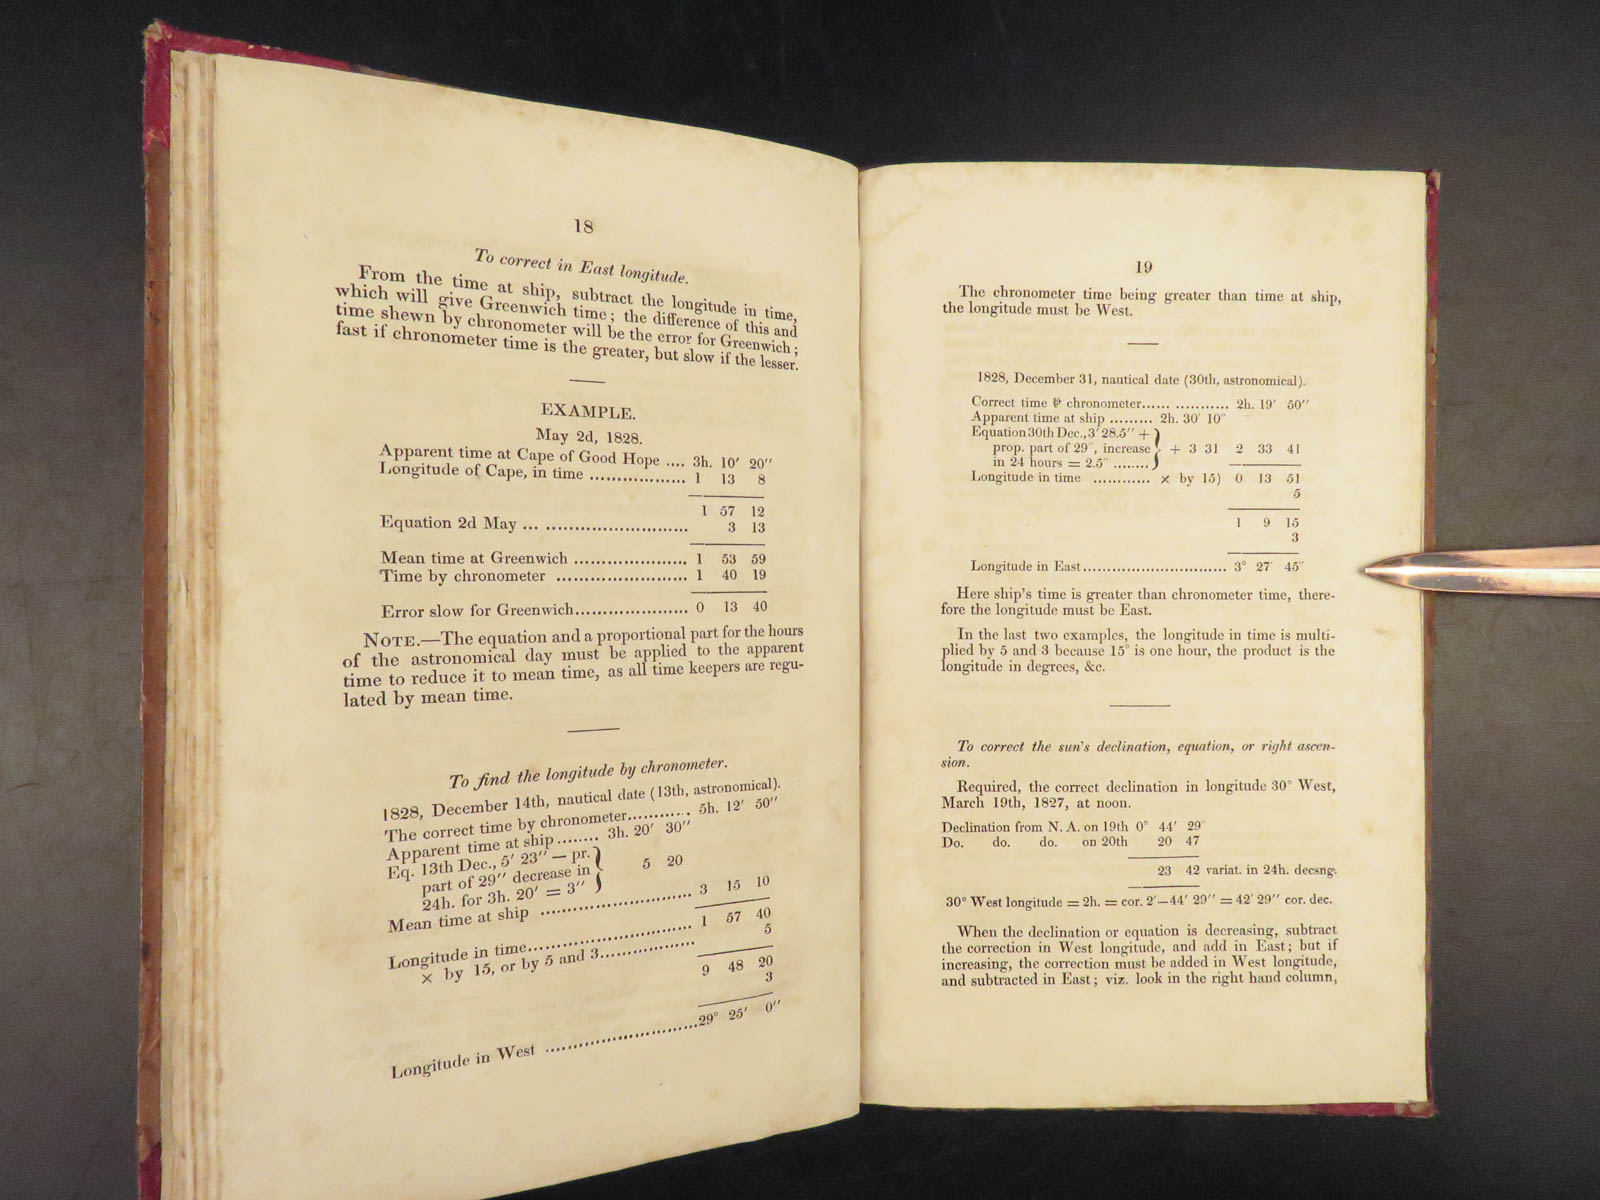 18
To correct in East longitude.
From the time at ship, subtract the longitude in time,
which will give Greenwich time; the difference of this and
time shewn by chronometer will be the error for Greenwich;
fast if chronometer time is the greater, but slow if the lesser.
EXAMPLE.
May 2d, 1828.
Apparent time at Cape of Good Hope .... 3h. 10′ 20″
Longitude of Cape, in time .................. 1 13 8
1 57 12
Equation 2d May ... .......................... 3 13
Mean time at Greenwich ..................... 1 53 59
Time by chronometer ........................ 1 40 19
Error slow for Greenwich..................... 0 13 40
NOTE.—The equation and a proportional part for the hours
of the astronomical day must be applied to the apparent
time to reduce it to mean time, as all time keepers are regu-
lated by mean time.
To find the longitude by chronometer.
1828, December 14th, nautical date (13th, astronomical).
The correct time by chronometer............ 5h. 12′ 50″
Apparent time at ship ........ 3h. 20′ 30″
Eq. 13th Dec., 5′ 23″ — pr.
part of 29″ decrease in } 5 20
24h. for 3h. 20′ = 3″
Mean time at ship ............................ 3 15 10
Longitude in time.............................. 1 57 40
× by 15, or by 5 and 3.................. 5
9 48 20
3
Longitude in West ............................29° 25′ 0″
19
The chronometer time being greater than time at ship,
the longitude must be West.
1828, December 31, nautical date (30th, astronomical).
Correct time ⅌ chronometer...... ........... 2h. 19′ 50″
Apparent time at ship ......... 2h. 30′ 10″
Equation 30th Dec., 3′ 28.5″ +
prop. part of 29″, increase } + 3 31 2 33 41
in 24 hours = 2.5″ ........
Longitude in time ............ × by 15) 0 13 51
5
1 9 15
3
Longitude in East............................. 3° 27′ 45″
Here ship's time is greater than chronometer time, there-
fore the longitude must be East.
In the last two examples, the longitude in time is multi-
plied by 5 and 3 because 15° is one hour, the product is the
longitude in degrees, &c.
To correct the sun's declination, equation, or right ascen-
sion.
Required, the correct declination in longitude 30° West,
March 19th, 1827, at noon.
Declination from N. A. on 19th 0° 44′ 29″
Do. do. do. on 20th 20 47
23 42 variat. in 24h. decsng.
30° West longitude = 2h. = cor. 2′—44′ 29″ = 42′ 29″ cor. dec.
When the declination or equation is decreasing, subtract
the correction in West longitude, and add in East; but if
increasing, the correction must be added in West longitude,
and subtracted in East; viz. look in the right hand column,